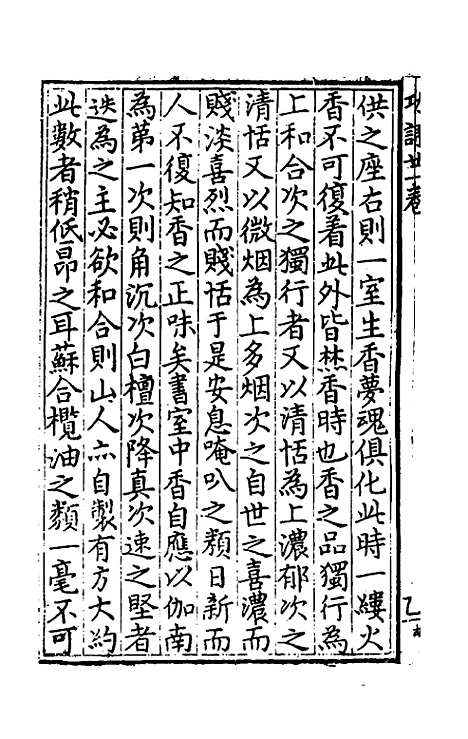 供之座右則一室生香夢魂俱化此時一縷火
香不可復着此外皆焚香時也香之品獨行為
上和合次之獨行者又以清恬為上濃郁次之
清恬又以微烟為上多烟次之自世之喜濃而
賤淡喜烈而賤恬于是安息唵叭之類日新而
人不復知香之正味矣書室中香自應以伽南
為第一次則角沉次白檀次降真次速之堅者
迭為之主必欲和合則山人亦自製有方大約
此數者稍低昂之耳蘇合欖油之類一毫不可